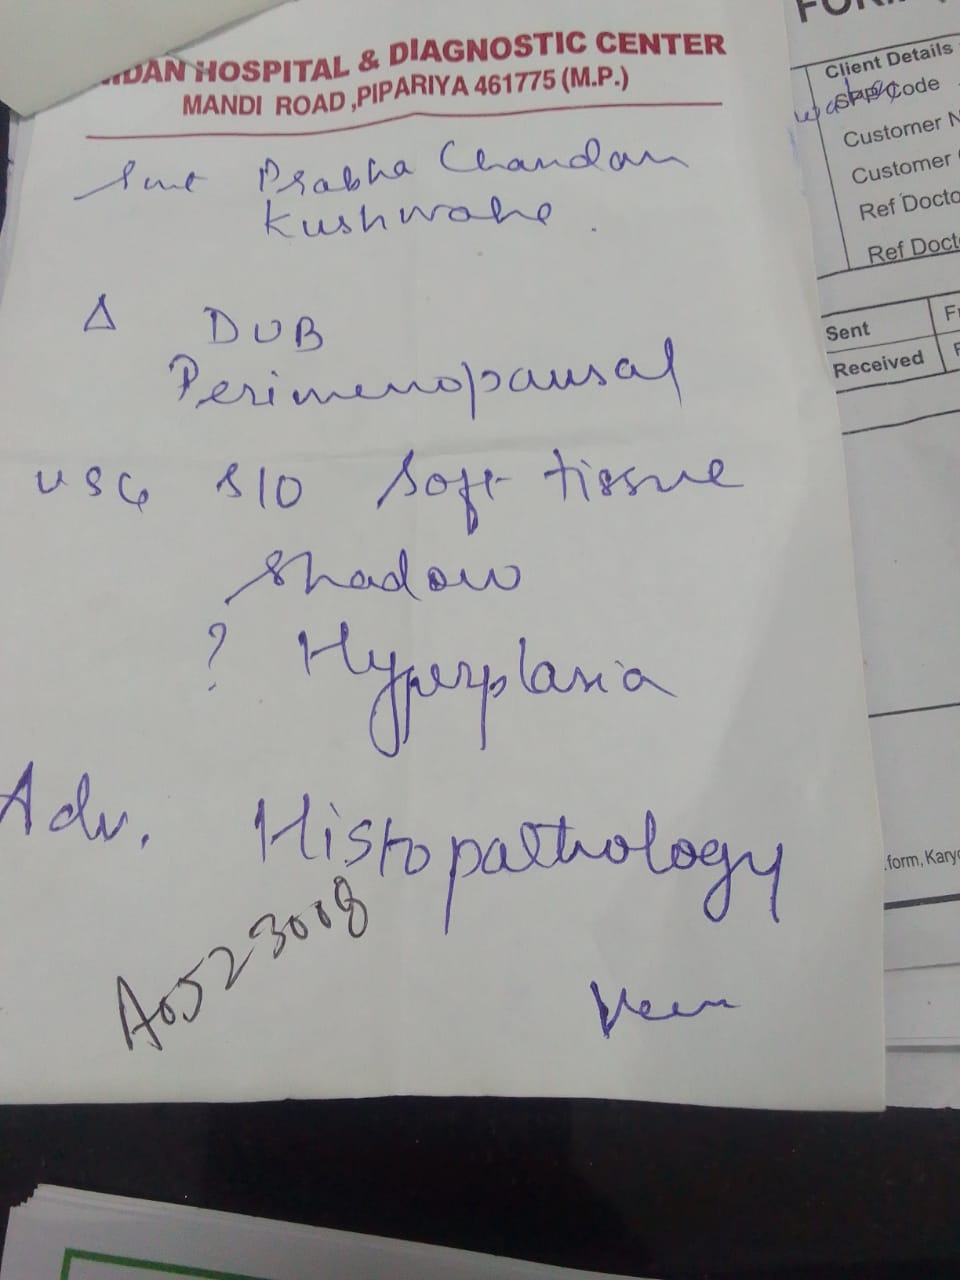 HOSPITAL & DIAGNOSTIC CENTER
MANDI ROAD ,PIPARIYA 461775 (M.P.)
Smt Prabha Chandan
Kushwahe .
Δ DUB
Perimenopausal
USG S/O Soft tissue
shadow
? Hyperplasia
Adv. Histopathology
A0523008
Client Details
Code
Customer
Customer
Ref Docto
Ref Docto
Sent
Received
.form, Karyo